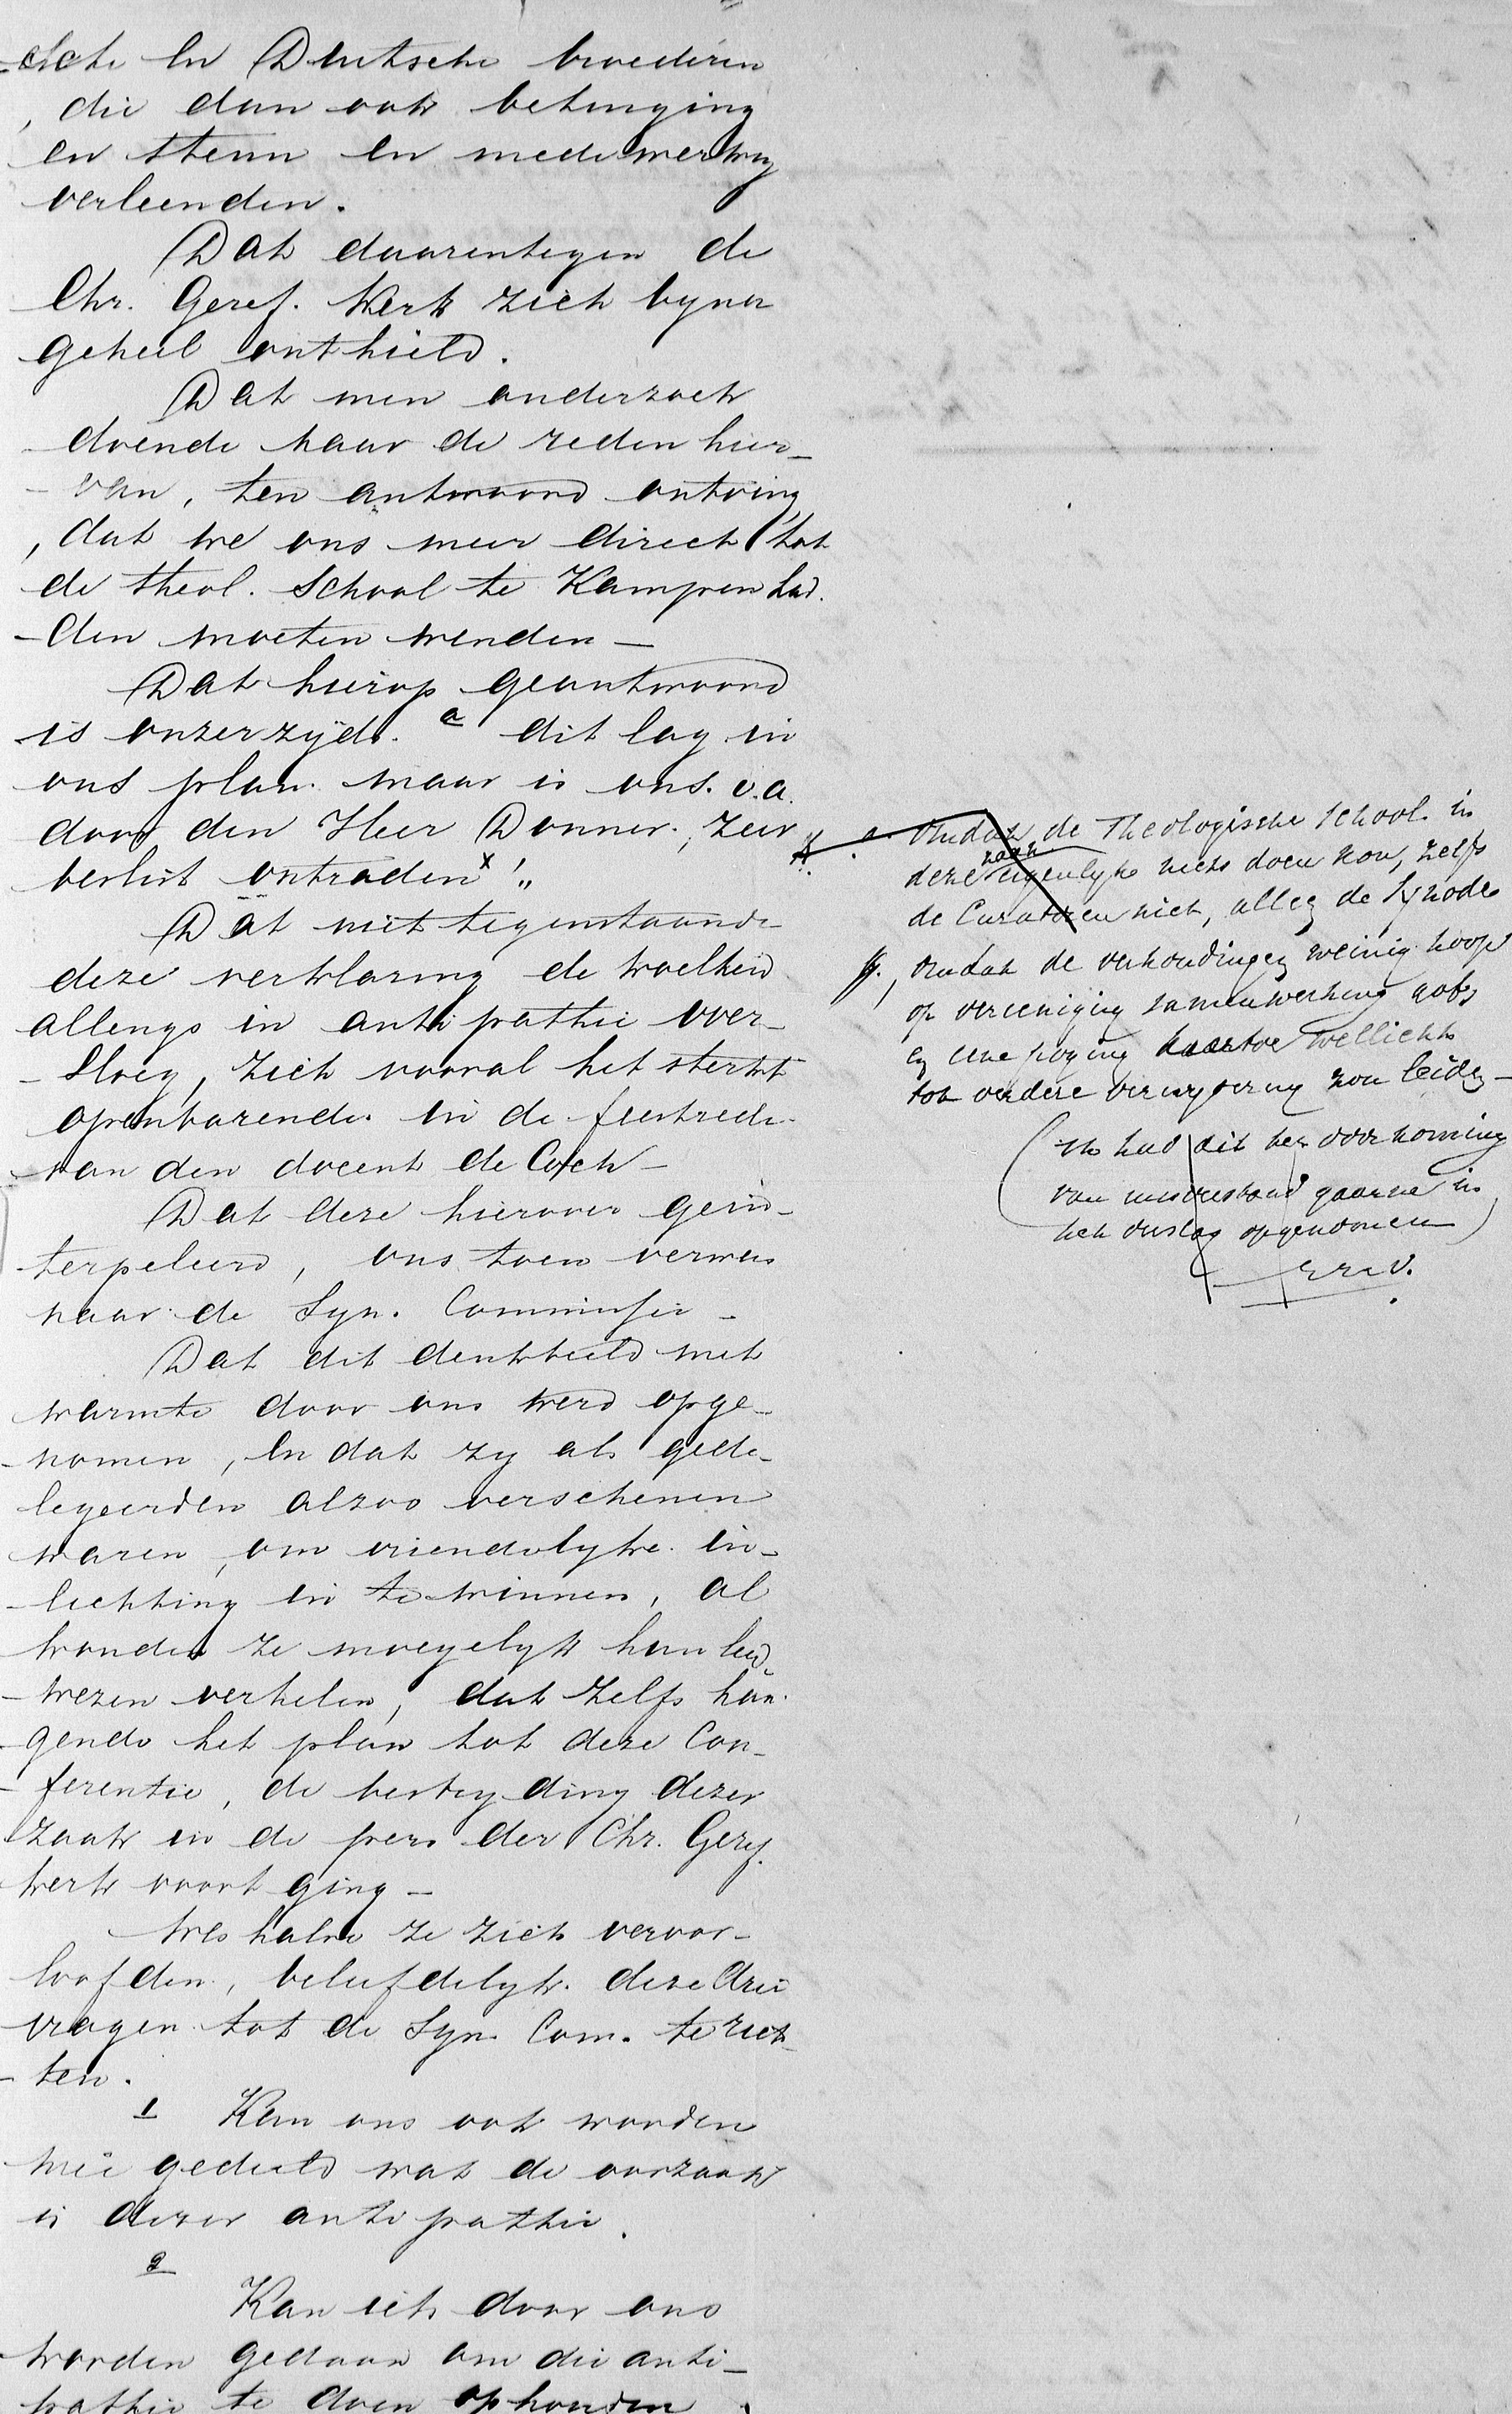 -sche en Duitsche broederen
, die dan ook betuiging
en steun en medewerking
verleenden.
Dat daarentegen de
Chr. Geref. Kerk zich byna
geheel onthield.
Dat men onderzoek
doende naar de reden hier-
-van, ten antwoord ontving,
, dat we ons meer direct tot
de theol. School te Kampen had.
-den moeten wenden -
Dat hierop geantwoord
is onzerzyds. a dit lag in
ons plan. maar is ons. o.a.
door den Heer Donner, zeer
beslist ontraden x!„
Dat niettegenstaande
deze verklaring de koelheid
allengs in antipathie over-
-sloeg, zich vooral het sterkst
openbarende in de feestrede
van den docent de Cock -
Dat deze hierover gein-
terpeleerd, ons toen verwees
naar de Syn. Commissie -
Dat dit denkbeeld met
warmte door ons werd opge-
-nomen, en dat zy als gede-
legeerden alzoo verschenen
waren, om vriendelyke in-
-lichting in te winnen, al
konden ze moegelyk hun leed
-wezen verhelen, dat zelfs han-
gende het plan tot deze Con-
-ferentie, de bestryding dezer
zaak in de pers der Chr. Geref.
kerk voort ging -
Weshalve ze zich veroor-
loofden, beleefdelyk deze drie
vragen tot de Syn. Com. te rich
-ten.
1 Kan ons ook worden
mee gedeeld wat de oorzaak
is dezer antipathie.
2
Kan iets door ons
worden gedaan om die anti-
pathie te doen ophouden.
a. omdat de Theologische School in
deze zaak eigenlyk niets doen kon, zelfs
de Curatoren niet, alleen de Synode
omdat de verhoudingen weinig hoop
op vereeniging samenwerking gaf
en eene poging daartoe wellicht
tot verdere verwydering zou leiden -
(Ik had dit ter voorkoming
van misverstand gaarne in
het verslag opgenomen)